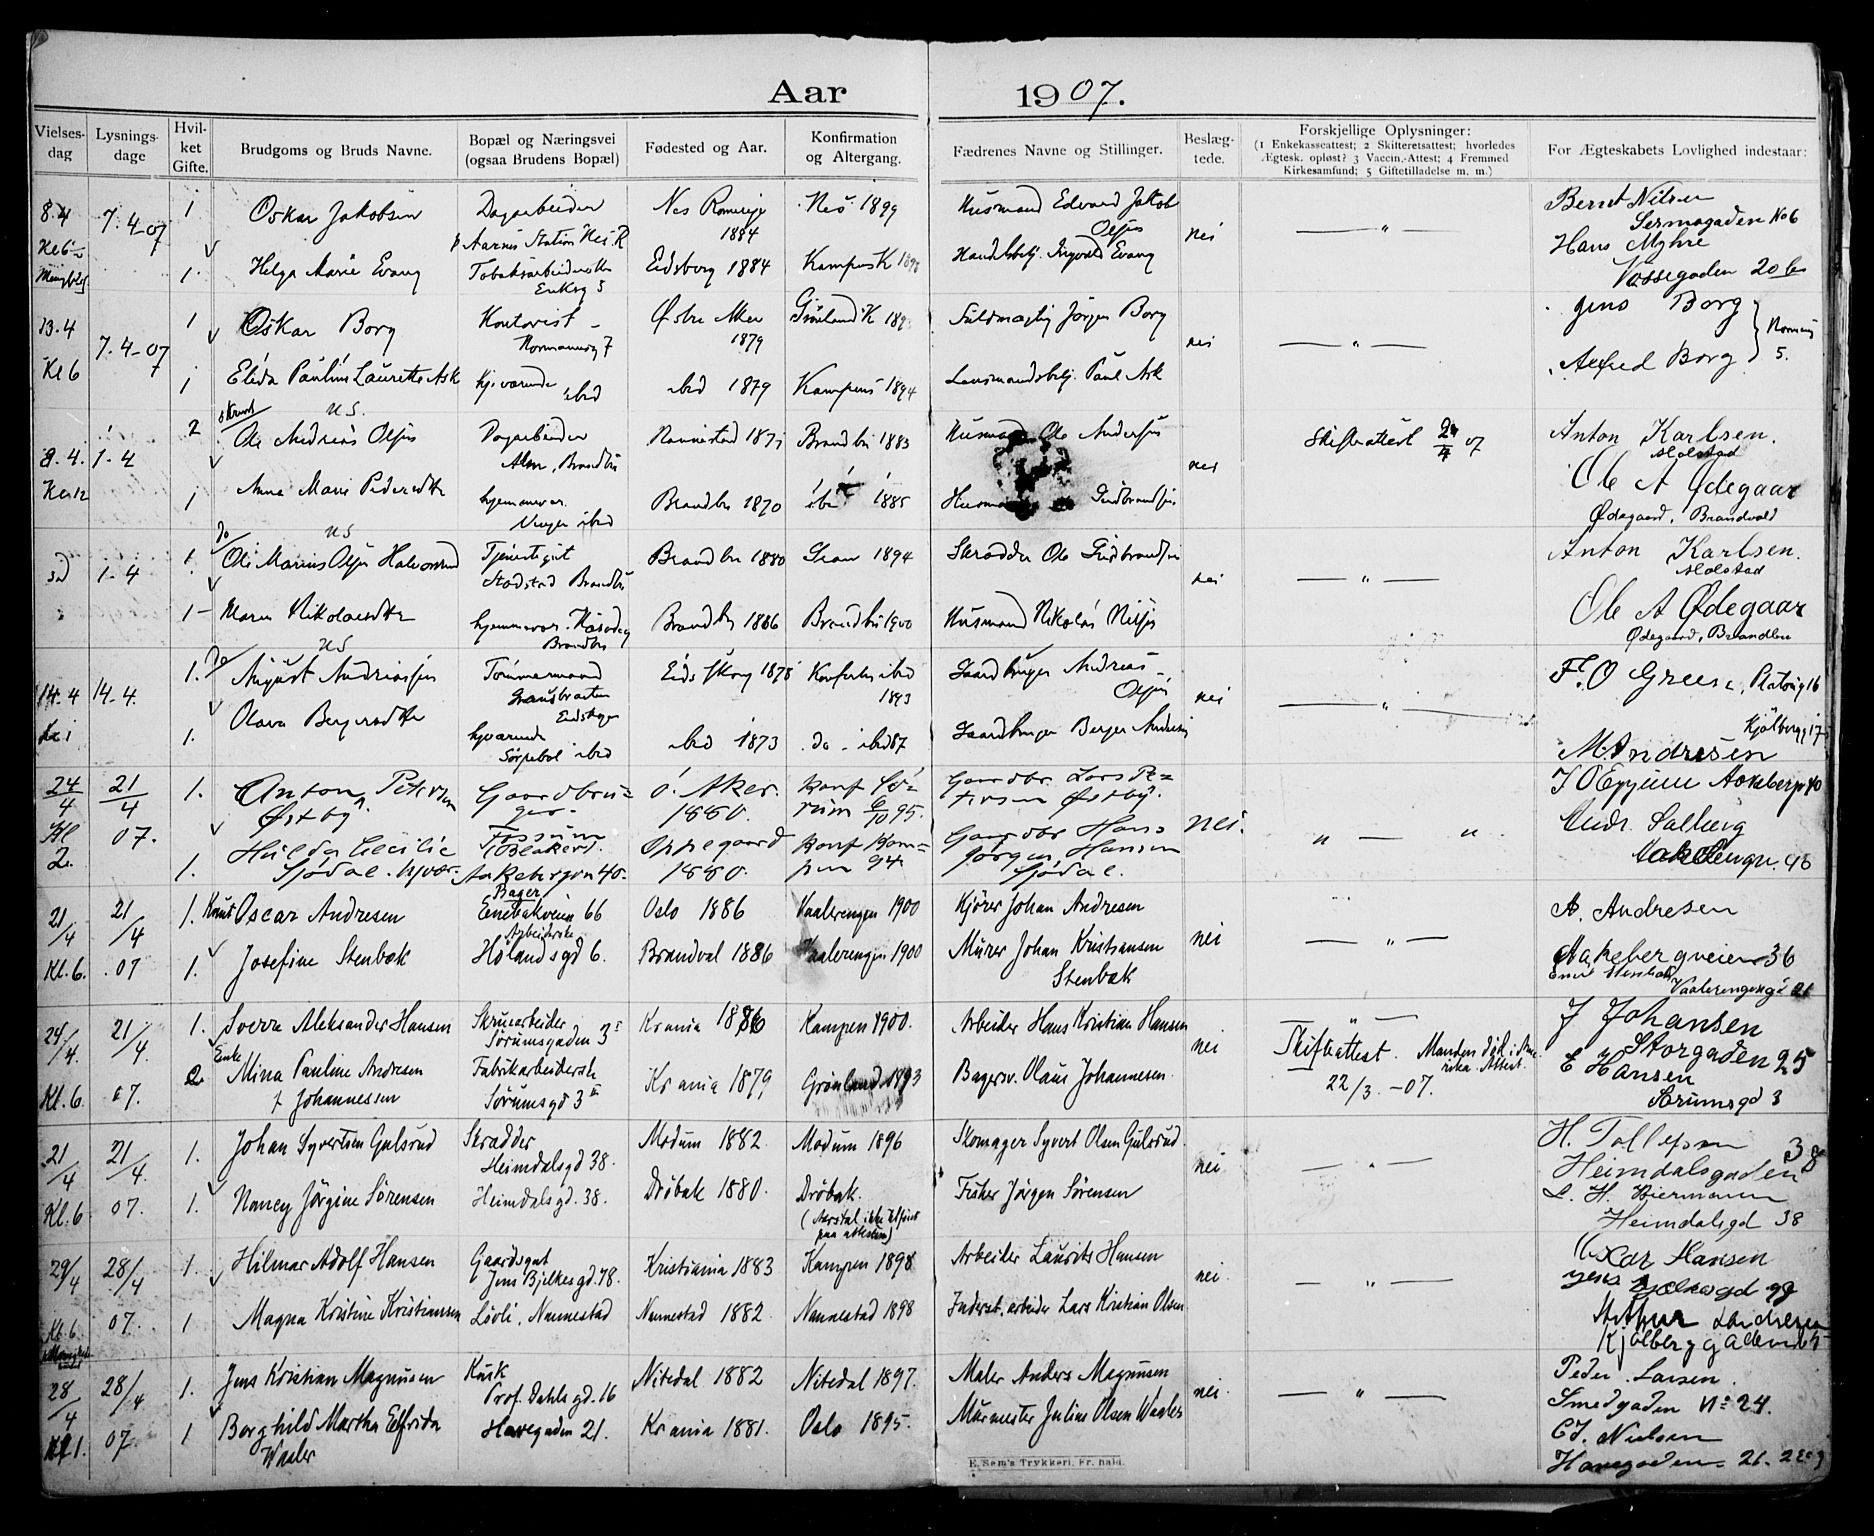 Aar 1907.
Vielses-dag
Lysnings-dage
Hvil-ket Gifte.
Brudgoms og Bruds Navne.
Bopæl og Næringsvei (ogsaa Brudens Bopæl)
Fødested og Aar.
Konfirmation og Altergang.
Fædrenes Navne og Stillinger.
Beslæg-tede.
Forskjellige Oplysninger: (1 Enkekasseattest; 2 Skifteretsattest; hvorledes Ægtesk. opløst? 3 Vaccin.-Attest; 4 Fremmed Kirkesamfund; 5 Giftetilladelse m. m.)
For Ægteskabets Lovlighed indestaar:
8.4 7.4-07 1 Oskar Jakobsen Dagarbeider Nes Romerige 1884 Nes 1899 Husmand Edvard Jakob Olsen nei — " — Bernt Nilsen
Aarnes Station Nes R. Hans Myhre
1. Helga Marie Evang Eriksg 5 Eidsberg 1884 Kampens K Handelsbetj. Ingvald Evang Vossegaden 20
13.4 7.4-07 1 Oskar Borg Kontorist Normannsg 7 Østre Aker 1879 Grønland K Fuldmægtig Jørgen Borg nei — " — Jens Borg
Kl 6 1 Elida Pauline Lauretta Ask Hj.værende ibid ibid 1879 Kampens 1894 Lensmandsbetj. Paul Ask Alfred Borg 5.
8.4. 1.4 2 Ole Andreas Olsen Dagarbeider Brandbu 1883 Husmand Ole Andersen nei Skifteattest 07 Anton Karlsen. Alolstad
Kl. 12 1 Anna Marie Pedersdtr hjemmevær. ibid Brandbu 1870 1885 Husmand Gudbrandsen Ole A Ødegaar
Ødegaard, Brandvold
1-4 1. Ole Marius Olsen Tjenestegut Brandbu 1880 Gran 1894 Skrædder Ole Gudbrandsen nei — " — Anton Karlsen. Alolstad
1 Maren Nikolaisdtr hjemmevær. Brandbu Brandbu 1886 Brandbu 1900 Husmand Nikolai Nilsen Ole A Ødegaar
Ødegaard, Brandbu
14.4 14.4. 1. August Andreassen Tømmermand Eidskog 1875 Konf. ibid 1893 Gaardbruger Andreas Olsen nei — " — F. O
1. Olava Bergersdtr hjværende ibid ibid 1873 do. ibid 87 Gaardbruger Berger M. Andresen
24/4 21/4 07. 1. Anton Petersen Østby Gaardbruger Ø. Aker. 1880. Konf Gaardbr Lars Petersen Østby. nei. " — "
Kl 2. 1. Hulda Cecilie Sjødal. hjvær. Aakebergvn 40. Oppegaard 1880. Konf Kampen 94 Gaardbr Hans Jørgen Hansen Sjødal. Andr. Solberg
21/4 21/4 07 1. Knut Oscar Andresen Bager Enebakveien 66 Oslo 1886 Vaalerengen 1900 Kjører Johan Andresen nei — " — A. Andresen
Kl. 6. 1. Josefine Stenbæk Arbeiderske Hølandsgd 6. Brandval 1886 Vaalerengen 1900 Murer Johan Kristiansen Stenbæk Aakebergveien 36
Vaalerengengd 21
24/4. 21/4. 07. 1. Sverre Aleksander Hansen Skruearbeider Sørumsgaden 3 Krania 1886 Kampen 1900. Arbeider Hans Kristian Hansen nei " — J Johansen Storgaden 25
Kl. 6. Enke 2. Mina Pauline Andresen f Johannessen Fabrikarbeiderske Sørumsgd 3 Krania 1879 Grønland 1893 Bagersv. Olaus Johannesen. Skifteattest. 22/3. -07. Manden død i Amerika. Attest. E Hansen Sørumsgd 3
21/4 21/4. 07. 1. Johan Syvertsen Gulsrud Skrædder Heimdalsgd 38. Modum 1882. Modum 1896 Skomager Syvert Olsen Gulsrud. nei — " — H. Tollefsen Heimdalsgaden 38
Kl. 6. 1. Nancy Jørgine Sørensen Heimdalsgd. 38. Drøbak 1880. Drøbak. (Aarstal ikke tilført paa attesten) Fisker Jørgen Sørensen H. Biermann Heimdalsgd 38
29/4 28/4 07. 1. Hilmar Adolf Hansen Gaardsgut Jens Bjelkesgd. 78. Kristiania 1883 Kampen 1898 Arbeider Laurits Hansen nei — " — Oscar Hansen
Kl. 6. 1 Magna Kristine Kristiansen Løvli, Nannestad Nannestad 1882. Nannestad 1898 Inderst. arbeider Lars Kristian Olsen Arthur Andresen
28/4 28/4 07 1. Jens Kristian Magnusen Kusk Prof. Dahls gd. 16 Nitedal 1882 Nitedal 1897. Maler Anders Magnusen nei. — " — Peder Larsen. Smedgaden No 24.
Kl 1. 1 Borghild Martha Elfrida Waaler Havegaden 21. Krania 1881. Oslo 1895. Murmester Julius Olsen Waaler C.J. Nielsen Havegaden 21.
E. Sem's Trykkeri, Fr.hald.